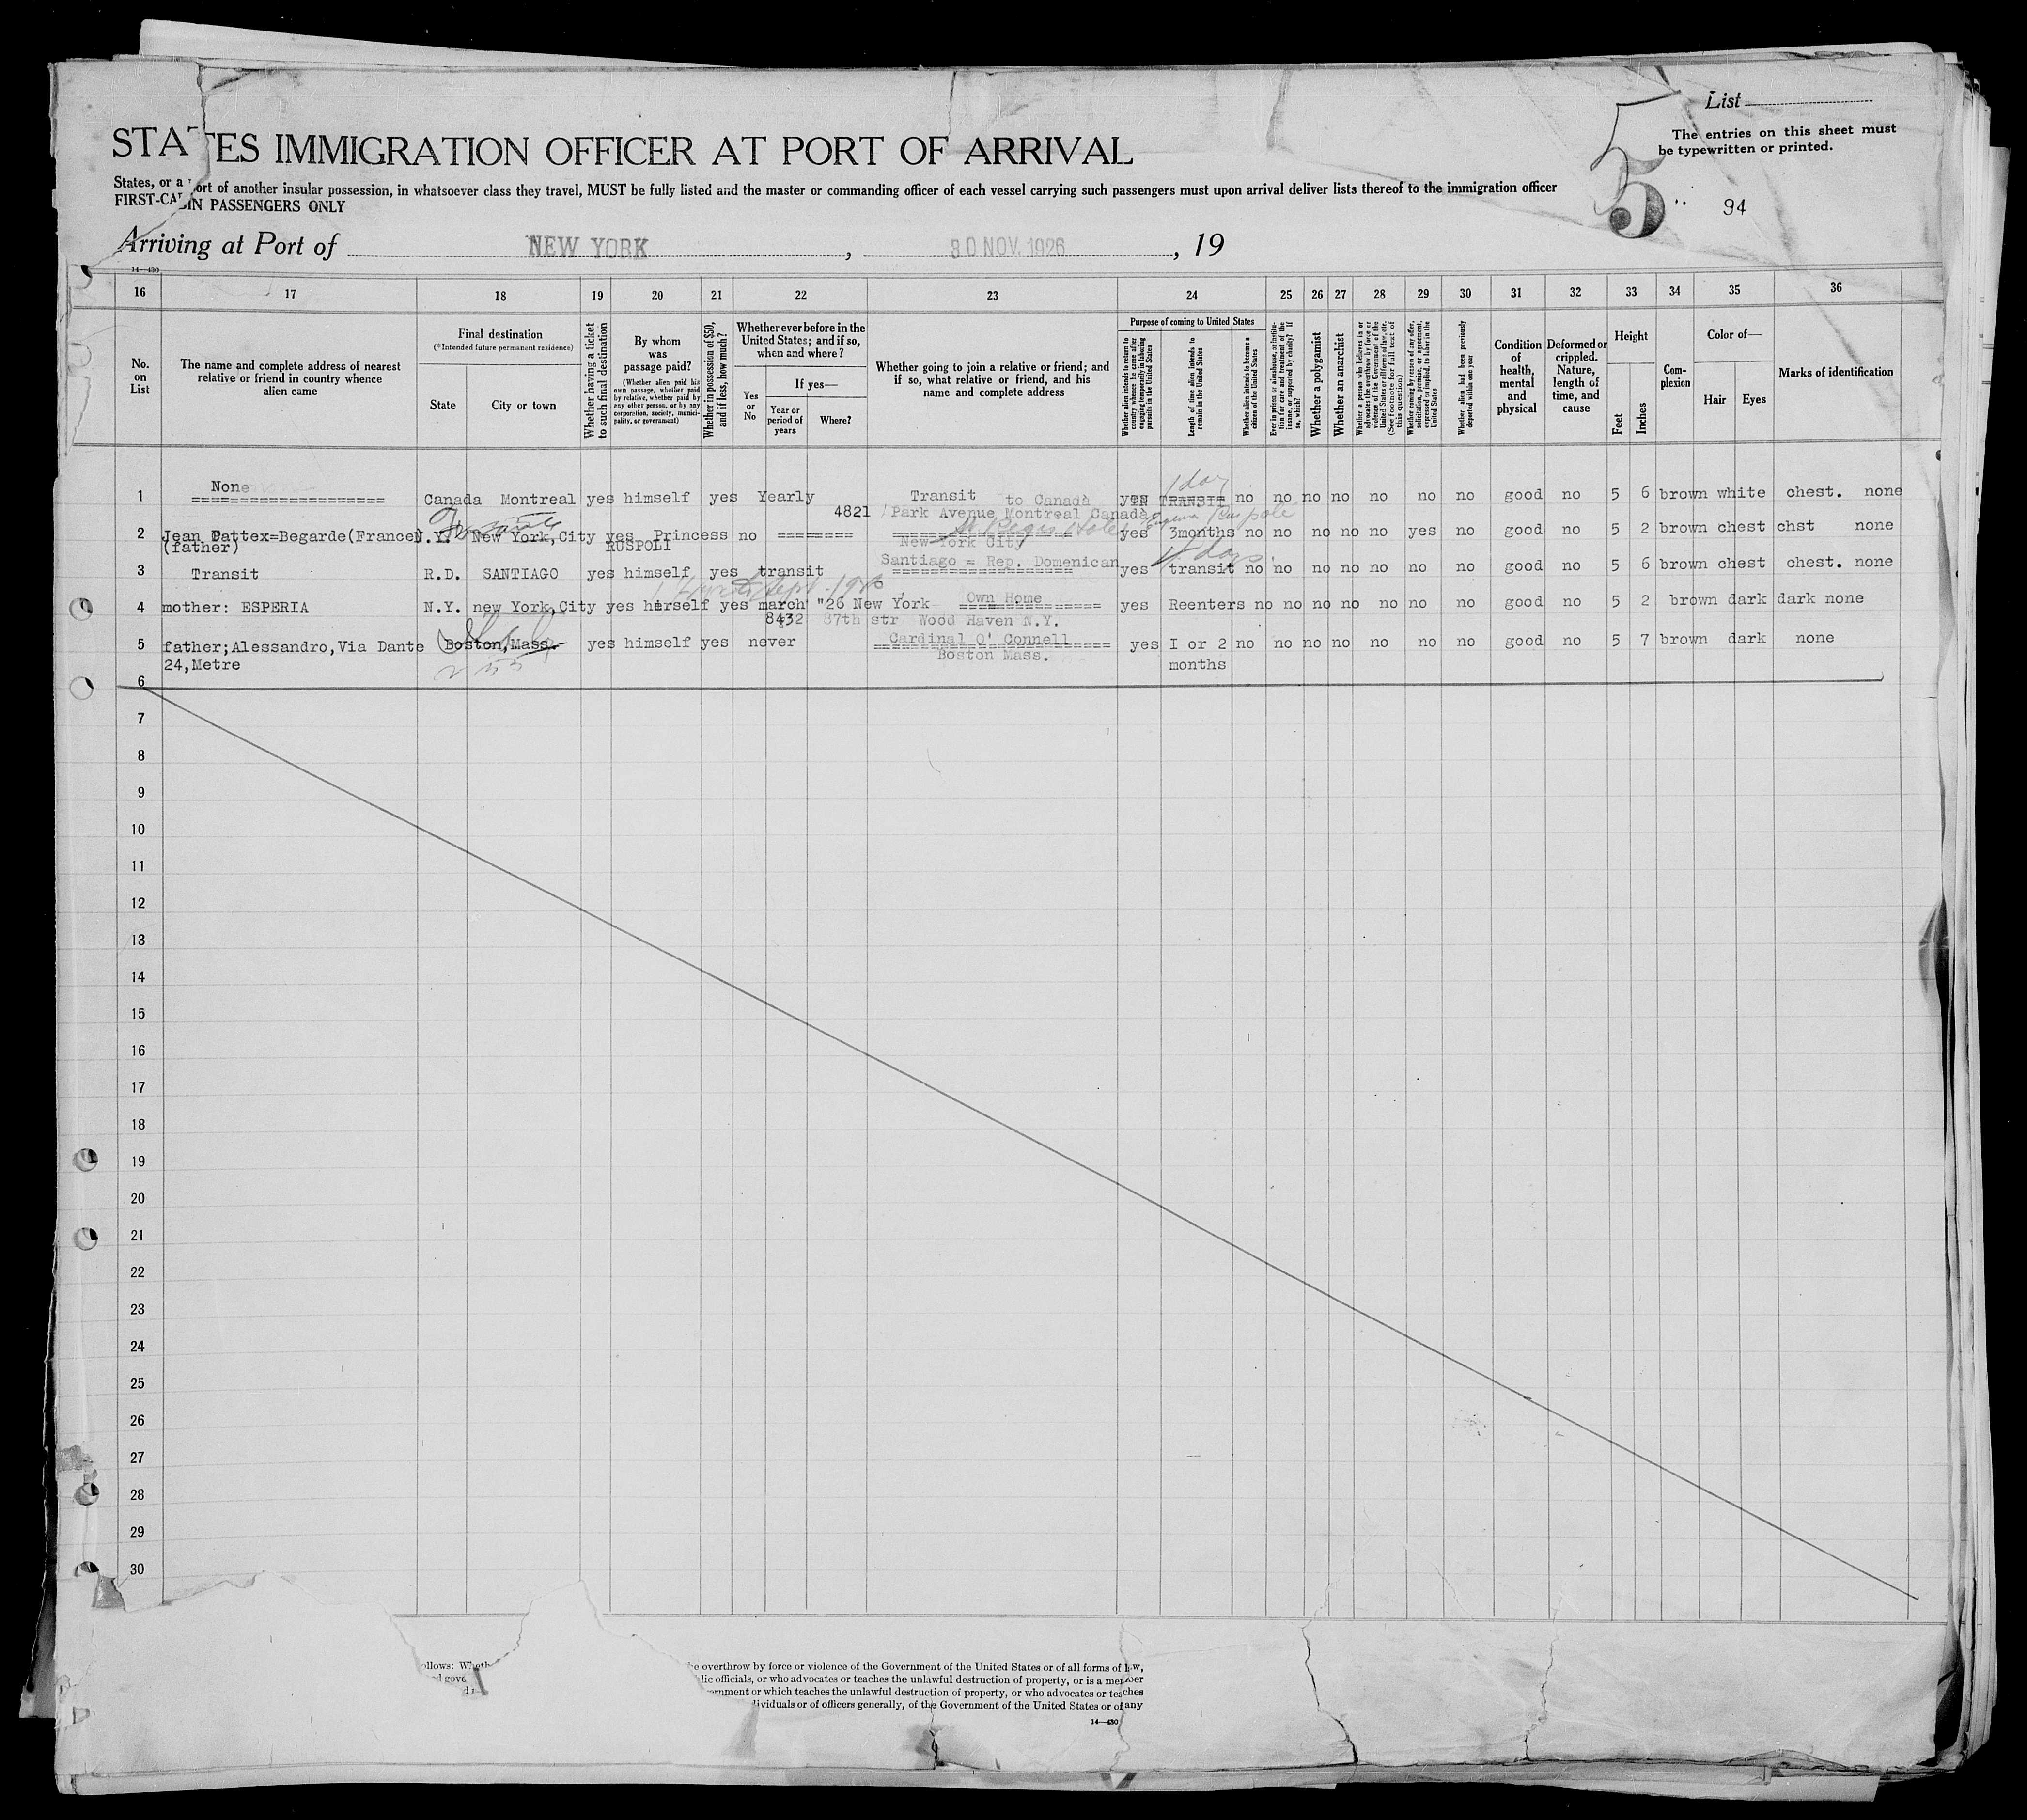 List
The entries on this sheet must
be typewritten or printed.
5
94
STATES IMMIGRATION OFFICER AT PORT OF ARRIVAL
States, or a port of another insular possession, in whatsoever class they travel, MUST be fully listed and the master or commanding officer of each vessel carrying such passengers must upon arrival deliver lists thereof to the immigration officer
FIRST-CABIN PASSENGERS ONLY
Arriving at Port of NEW YORK, 30 NOV. 1926, 19
14—430
16 17 18 19 20 21 22 23 24 25 26 27 28 29 30 31 32 33 34 35 36
No. on List
The name and complete address of nearest relative or friend in country whence alien came
Final destination
(*Intended future permanent residence)
State
City or town
Whether having a ticket to such final destination
By whom was passage paid?
(Whether alien paid his own passage, whether paid by relative, whether paid by any other person, or by any corporation, society, municipality, or government)
Whether in possession of $50, and if less, how much?
Whether ever before in the United States; and if so, when and where?
Yes or No
If yes—
Year or period of years
Where?
Whether going to join a relative or friend; and if so, what relative or friend, and his name and complete address
Purpose of coming to United States
Whether alien intends to return to country whence he came after engaging temporarily in laboring pursuits in the United States
Length of time alien intends to remain in the United States
Whether alien intends to become a citizen of the United States
Ever in prison or almshouse, or institution for care and treatment of the insane, or supported by charity? If so, which?
Whether a polygamist
Whether an anarchist
Whether a person who believes in or advocates the overthrow by force or violence of the Government of the United States or all forms of law, etc. (See footnote for full text of this question)
Whether coming by reason of any offer, solicitation, promise, or agreement, expressed or implied, to labor in the United States
Whether alien had been previously deported within one year
Condition of health, mental and physical
Deformed or crippled. Nature, length of time, and cause
Height
Feet
Inches
Complexion
Color of—
Hair
Eyes
Marks of identification
1 day
1 None Canada Montreal yes himself yes Yearly Transit to Canada yes IN TRANSIT no no no no no no no good no 5 6 brown white chest. none
4821 Park Avenue Montreal Canada
St Regis Hotel
2 Jean Pattex=Begarde(France) N.Y. New York,City yes Princess no ======== yes 3months no no no no no yes no good no 5 2 brown chest chst none
(father) RUSPOLI New York City
Santiago = Rep. Domenican
3 Transit R.D. SANTIAGO yes himself yes transit yes transit no no no no no no no good no 5 6 brown chest chest. none
4 mother: ESPERIA N.Y. new York,City yes herself yes march "26 New York Own Home yes Reenters no no no no no no no good no 5 2 brown dark dark none
8432 87th str Wood Haven N.Y.
5 father;Alessandro,Via Dante Boston,Mass. yes himself yes never Cardinal O' Connell yes I or 2 no no no no no no no good no 5 7 brown dark none
24,Metre Boston Mass. months
6
7
8
9
10
11
12
13
14
15
16
17
18
19
20
21
22
23
24
25
26
27
28
29
30
ollows: Wheth
overthrow by force or violence of the Government of the United States or of all forms of law,
lic officials, or who advocates or teaches the unlawful destruction of property, or is a member
ernment or which teaches the unlawful destruction of property, or who advocates or teaches
dividuals or of officers generally, of the Government of the United States or of any
14—430